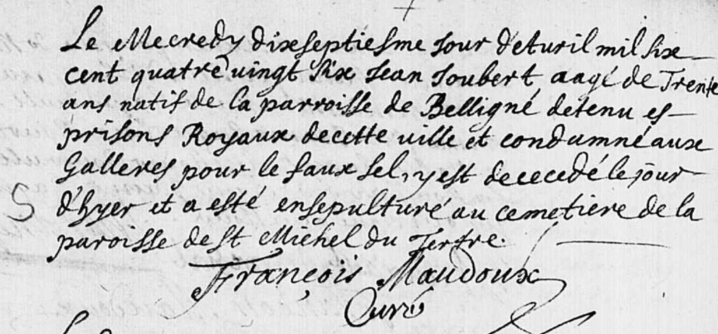 Le Mecredy dixseptiesme jour d'Avril mil six
cent quatre vingt six Jean Joubert aagé de Trente
ans natif de la parroisse de Belligné detenu es
prisons Royaux decette ville et condamné aux
Galleres pour le faux sel, y est dececedé le jour
d'hyer et a esté ensepulturé au cemetiere de la
paroisse de St Michel du Tertre.
François Maudoux
Curé